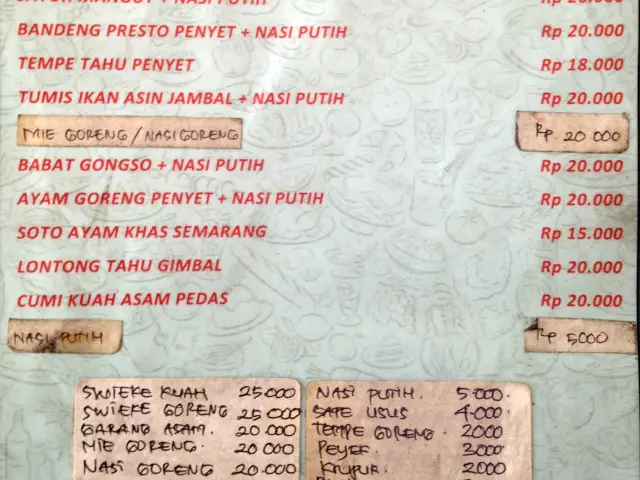 + NASI PUTIH Rp 20.000
BANDENG PRESTO PENYET + NASI PUTIH Rp 20.000
TEMPE TAHU PENYET Rp 18.000
TUMIS IKAN ASIN JAMBAL + NASI PUTIH Rp 20.000
MIE GORENG/NASI GORENG Rp. 20 000
BABAT GONGSO + NASI PUTIH Rp 20.000
AYAM GORENG PENYET + NASI PUTIH Rp 20.000
SOTO AYAM KHAS SEMARANG Rp 15.000
LONTONG TAHU GIMBAL Rp 20.000
CUMI KUAH ASAM PEDAS Rp 20.000
NASI PUTIH Rp 5000
SWIEKE KUAH 25.000
SWIEKE GORENG 25.000
GARANG ASAM. 20 000
MIE GORENG. 20 000
NASI GORENG 20.000
NASI PUTIH. 5.000.
SATE USUS 4.000.
TEMPE GORENG. 2000
PEYEK 3000
KRUPUK. 2000